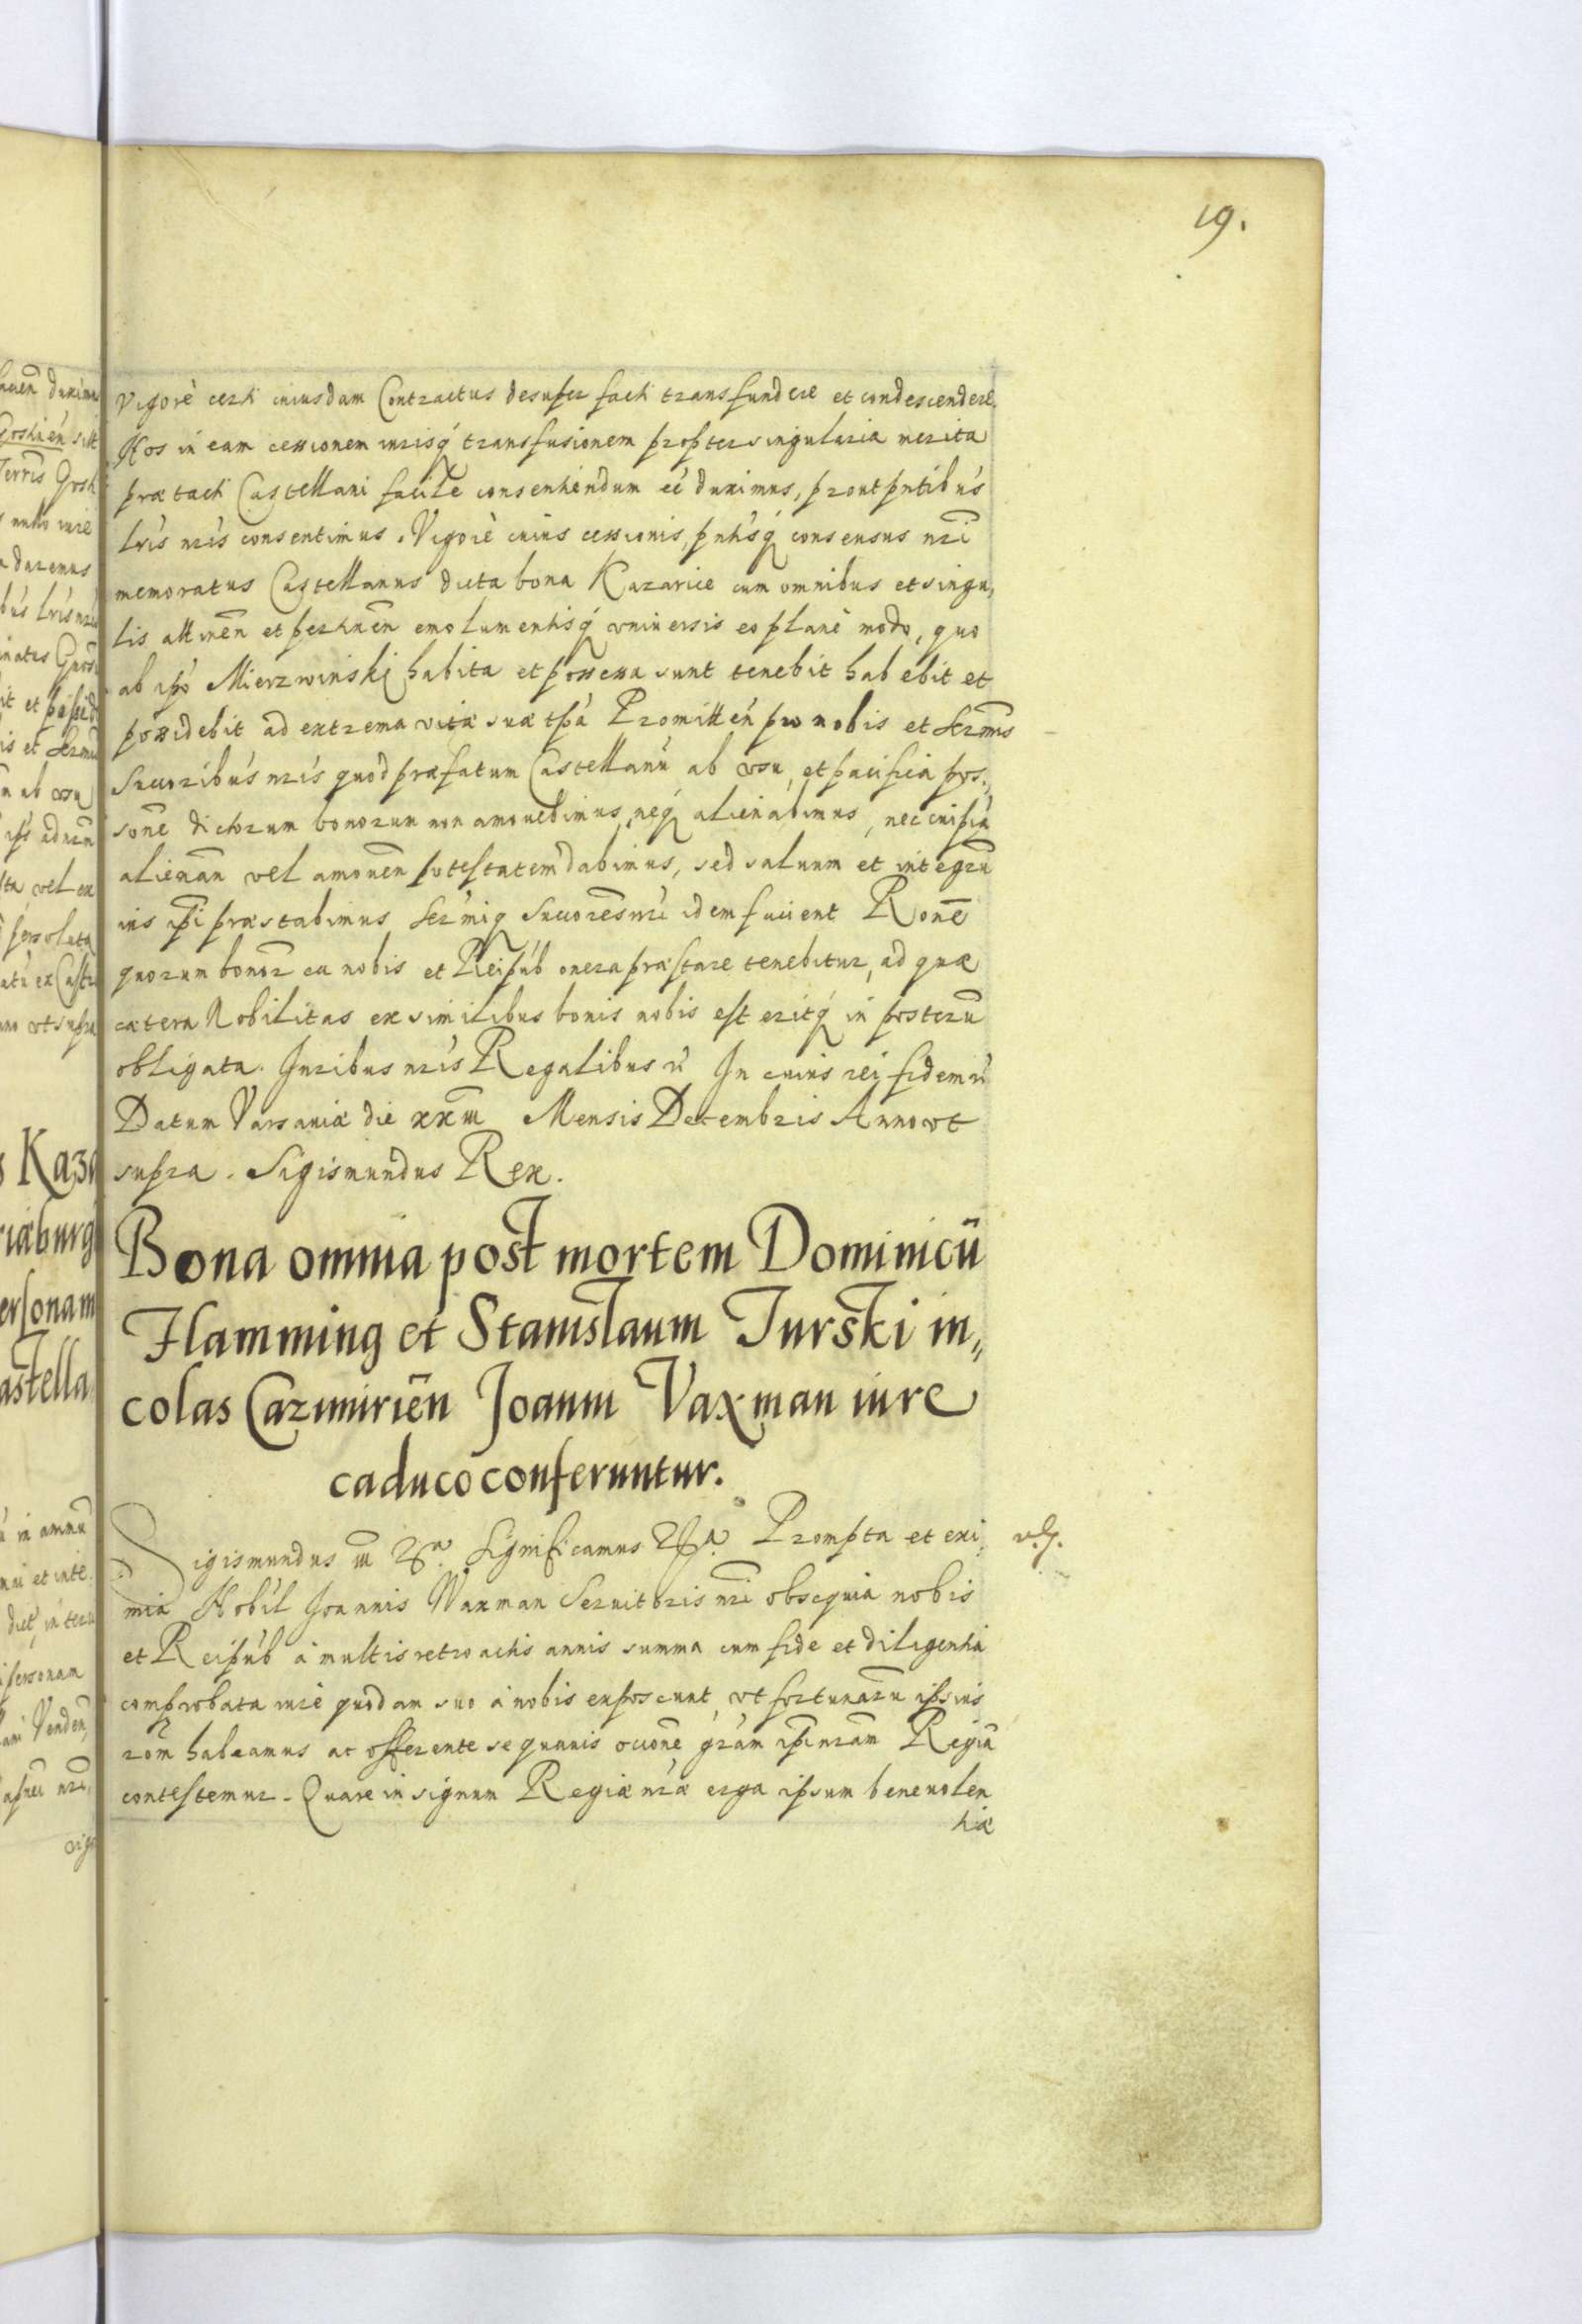 19.
Vigore certi cuiusdam Contractus desuper facti transfundere et condescendere.
Nos in eam cessionem iurisq́ transfusionem propter singularia merita
prætacti Castellani facile consentiendum eé duximus, prout pntibus
lris nris consentimus. Vigore cuius cessionis, pntisq́ consensus nri
memoratus Castellanus dicta bona Kazarice cum omnibus et singu,
lis attinen̄ et pertinen̄ emolumentisq́ vniuersis eo plane modo, quo
ab ipo Mierzwinski habita et possessa sunt tenebit habebit et
possidebit ad extrema vitæ suæ tpa Promitten̄ pro nobis et Sermis
Succoribus nris quod præfatum Castellanū ab vsu, et pacifica pos,
sone dictorum bonorum non amouebimus, neq́ alienabimus, nec cuipia
alienan̄ vel amouen̄ potestatem dabimus, sed saluum et integrū
ius ipi præstabimus Sermiq Succores nri idem facient Rone
quorum bonor ea nobis et Reipub onera præstare tenebitur, ad quæ
cætera Nobilitas ex similibus bonis nobis est eritq́ in posterū
obligata. Juribus nris Regalibus In cuius rei fidem
Datum Varsauiæ die xxiii Mensis Decembris Anno vt
supra. Sigismundus Rex.
Bona omnia post mortem Dominicū
Flamming et Stanislaum Turski in,,
colas Cazimirien̄ Joanni Vaxman iure
caduco conferuntur.
Sigismundus iii Significamus Prompta et exi,
mia Nobil Joannis Waxman Seruitoris nri obsequia nobis
et Reipub a multis retroactis annis summa cum fide et diligentia
comprobata iure quodam suo a nobis exposcunt, vt fortunarū ipsius
rom habeamus ac offerente se quauis occone gram ipi nram Regiā
contestemur. Quare in signum Regiæ nræ erga ipsum beneuolen
tiæ